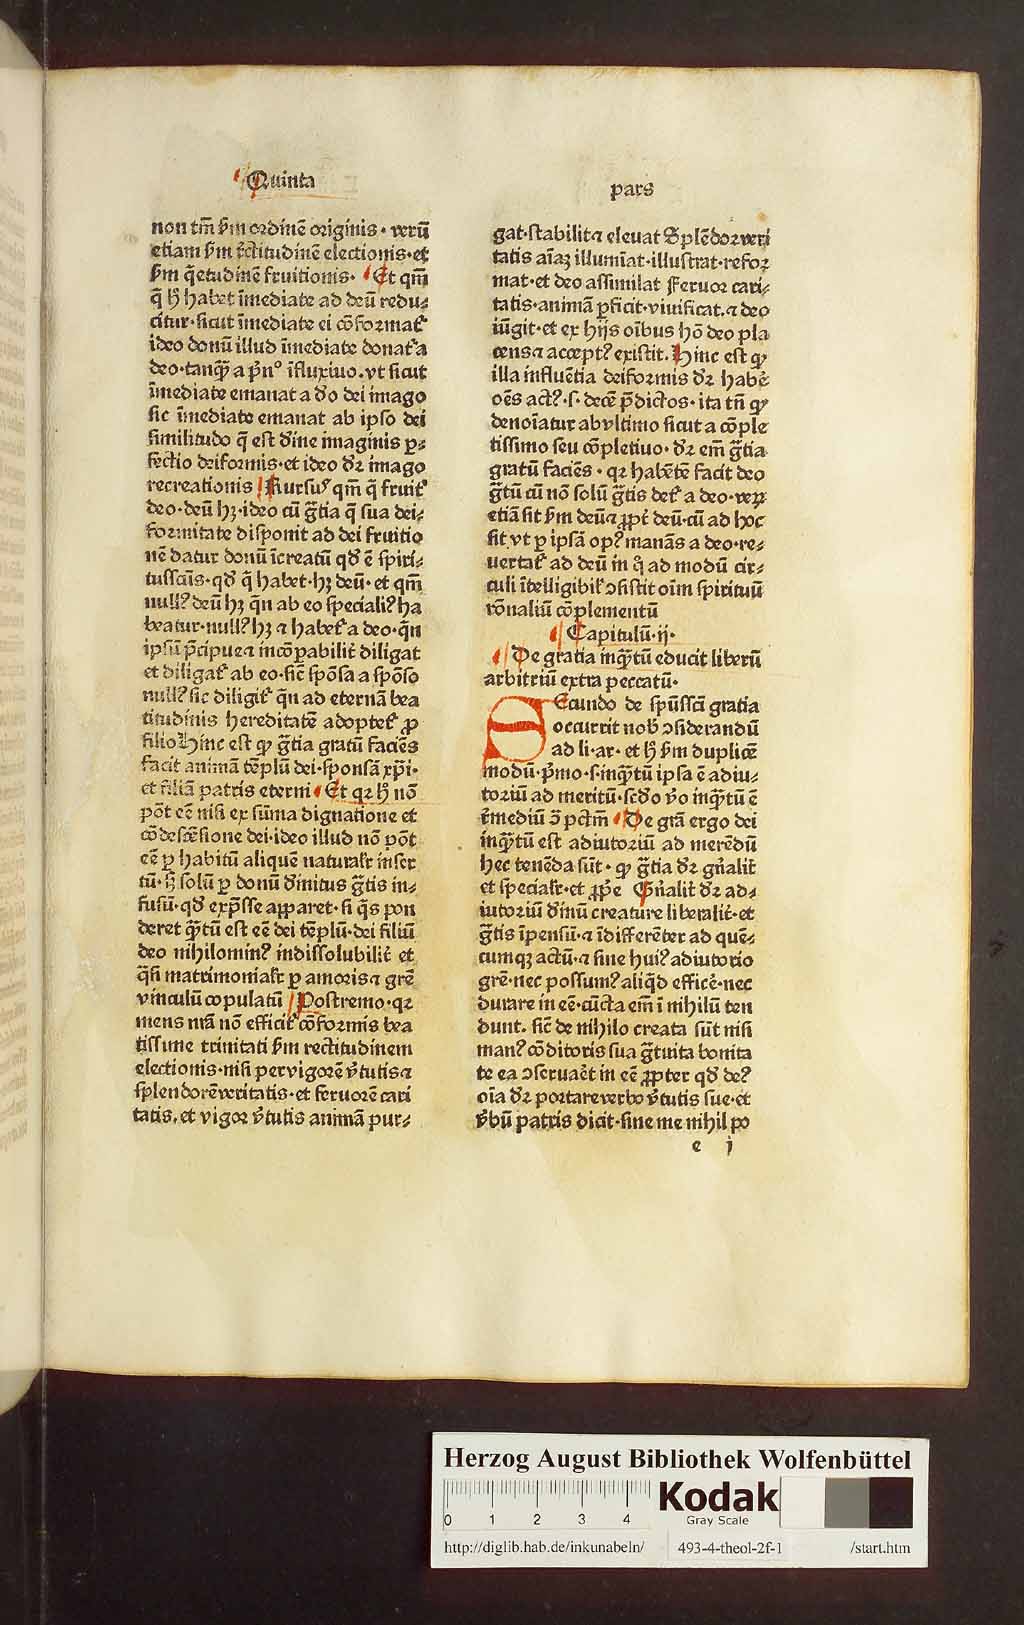 Quinta
non tm̄ ẜm ordinē originis · verū
etiam ẜm r̄ctitudinē electionis · et
ẜm q̄etudinē fruitionis · Et qm̄
q̄ hꝰ habet īmediate ad deū redu⸗
citur · sicut īmediate ei cōformat᷑
ideo donū illud īmediate donat᷑ a
deo · tanqᷓ a pͥnº īfluxiuo . vt sicut
īmediate emanat a dō dei imago
sic īmediate emanat ab ipso dei
similitudo q̄ est dīne imaginis ꝑ⸗
fectio deiformis · et ideo dꝛ imago
recreationis Rursuꝰ qm̄ q̄ fruit᷑
deo · deū hꝫ · ideo cū gr̄tia q̄ sua dei⸗
formitate disponit ad dei fruitio
nē datur donū īcreatū qđ ē spiri⸗
tusscūs · qđ q̄ habet · hꝫ deū · et qm̄
nullꝰ deū hꝫ qͥn ab eo specialiꝰ ha
beatur · nullꝰ hꝫ ⁊ habet᷑ a deo · qͥn
ipsū p̄cipue ⁊ incōꝑabilit̄ diligat
et diligat᷑ ab eo · sic̄ spōsa a spōso
nullꝰ sic diligit᷑ qͥn ad eternā bea
titudinis hereditatē adoptet᷑ ꝓ
filio Hinc est qꝙ gr̄tia gratū faciēs
facit animā tēplū dei · sponsā xp̄i ·
et filiā patris eterni · Et qꝛ hꝰ nō
pōt eē nisi ex sūma dignatione et
cōdescēsione dei · ideo illud nō pōt
eē ꝑ habitū aliquē naturalr̄ inser
tū · sꝫ solū ꝑ donū dīnitus gr̄tis in⸗
fusū · qđ exp̄sse apparet · si qͥs pon
deret qᷓtū est eē dei tēplū · dei filiū
deo nihilominꝰ indissolubilit̄ et
qͣsi matrimonialr̄ ꝑ amoris ⁊ grē
vinculū copulatū Postremo · qꝛ
mens nrā nō efficit᷑ cōformis bea
tissime trinitati ẜm rectitudinem
electionis · nisi per vigorē v̄tutis ⁊
splendorē veritatis · et feruorē cari
tatis . et vigor v̄tutis animā pur⸗
pars
gat · stabilit ⁊ eleuat Splēdor veri
tatis aīaꝫ illumīat · illustrat · refor
mat · et deo assimilat Feruor cari⸗
tatis · animā ꝑficit · viuificat . ⁊ deo
iūgit · et ex hijs oībus hō deo pla
cens ⁊ acceptꝰ existit . Hinc est qꝙ
illa influētia deiformis dꝛ habē
oēs actꝰ · s · decē p̄dictos · ita tn̄ qꝙ
denoīatur ab vltimo sicut a cōple
tissimo seu cōpletiuo · dꝛ em̄ gr̄tia
gratū faciēs · qꝛ habētē facit deo
gr̄tū cū nō solū gr̄tis det᷑ a deo · veꝝ
etiā sit ẜm deū ⁊ ꝓpt̄ deū · cū ad hoc
sit vt ꝑ ipsā opꝰ manās a deo · re⸗
uertat᷑ ad deū in qͦ ad modū cir⸗
culi ītelligibilr̄ ↄsistit oīm spirituū
rōnaliū cōplementū
Capitulū · ij ·
De gratia inqᷓtū educit liberū
arbitriū extra peccatū ·
SEcundo de spūssci gratia
occurrit nob̄ ↄsiderandū
ad li · ar · et hꝰ ẜm duplicē
modū · pͥmo · s · inqᷓtū ipsa ē adiu⸗
toriū ad meritū · scd̄o v̄o inqᷓtū ē
r̄mediū ↄ̄ pctm̄ De grā ergo dei
inqᷓtū est adiutoriū ad merēdū
hec tenēda sūt · qꝙ gr̄tia dꝛ gn̄alit̄
et specialr̄ · et ꝓpͥe Gn̄alit̄ dꝛ ad⸗
iutoriū dīnū creature liberalit̄ · et
gr̄tis īpensū · ⁊ īdifferēter ad quē⸗
cumqꝫ actū · ⁊ sine huiꝰ adiutorio
grē · nec possumꝰ aliqͥd efficē · nec
durare in eē · cūcta em̄ ī nihilū ten
dunt . sic̄ de nihilo creata sūt nisi
manꝰ cōditoris sua gr̄tuita bonita
te ea ↄseruaēt in eē ꝓpter qđ deꝰ
oīa dꝛ portare verbo v̄tutis sue · et
v̄bū patris dicit · sine me nihil po
e j
Herzog August Bibliothek Wolfenbüttel
0 1 2 3 4
Kodak
Gray Scale
http://diglib.hab.de/inkunabeln/ 493-4-theol-2f-1 /start.htm